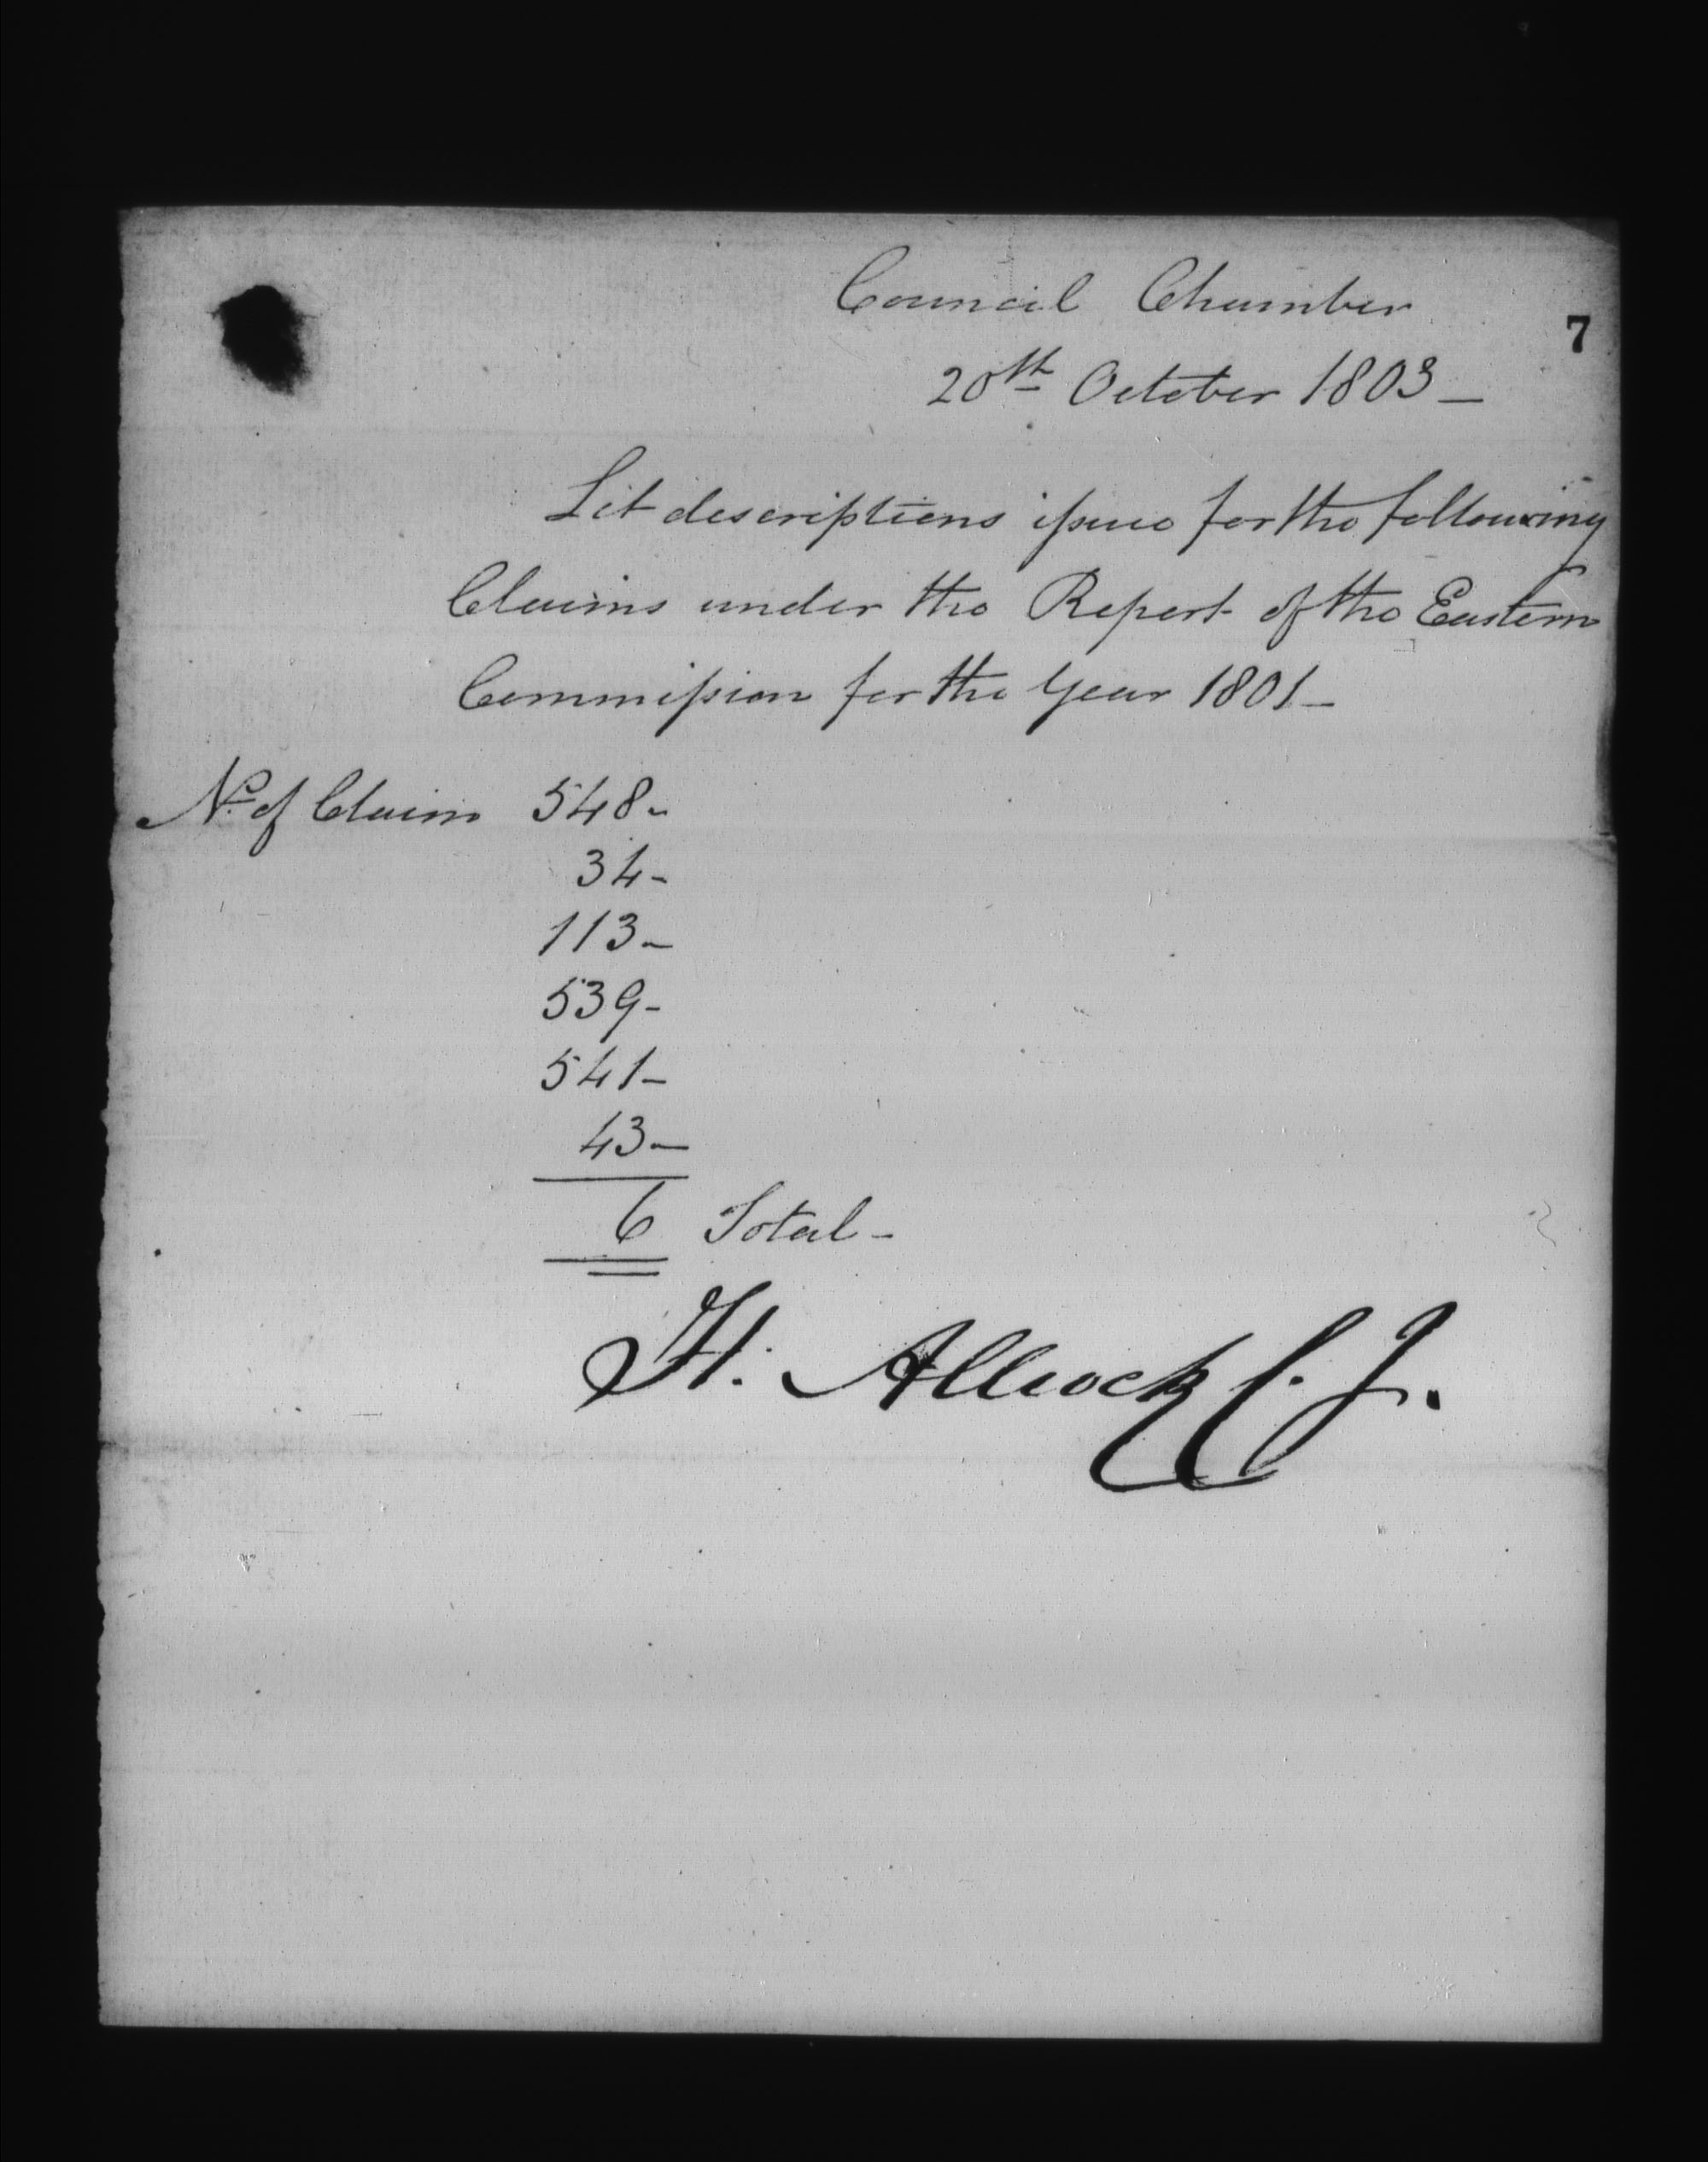 Council Chamber
7
20th October 1803 —
Let descriptions issue for the following
Claims under the Report of the Eastern
Commission for the Year 1801 —
No. of Claim 548 -
34 -
113 -
539 -
541 -
43 —
6 Total -
H. Allcock C. J.